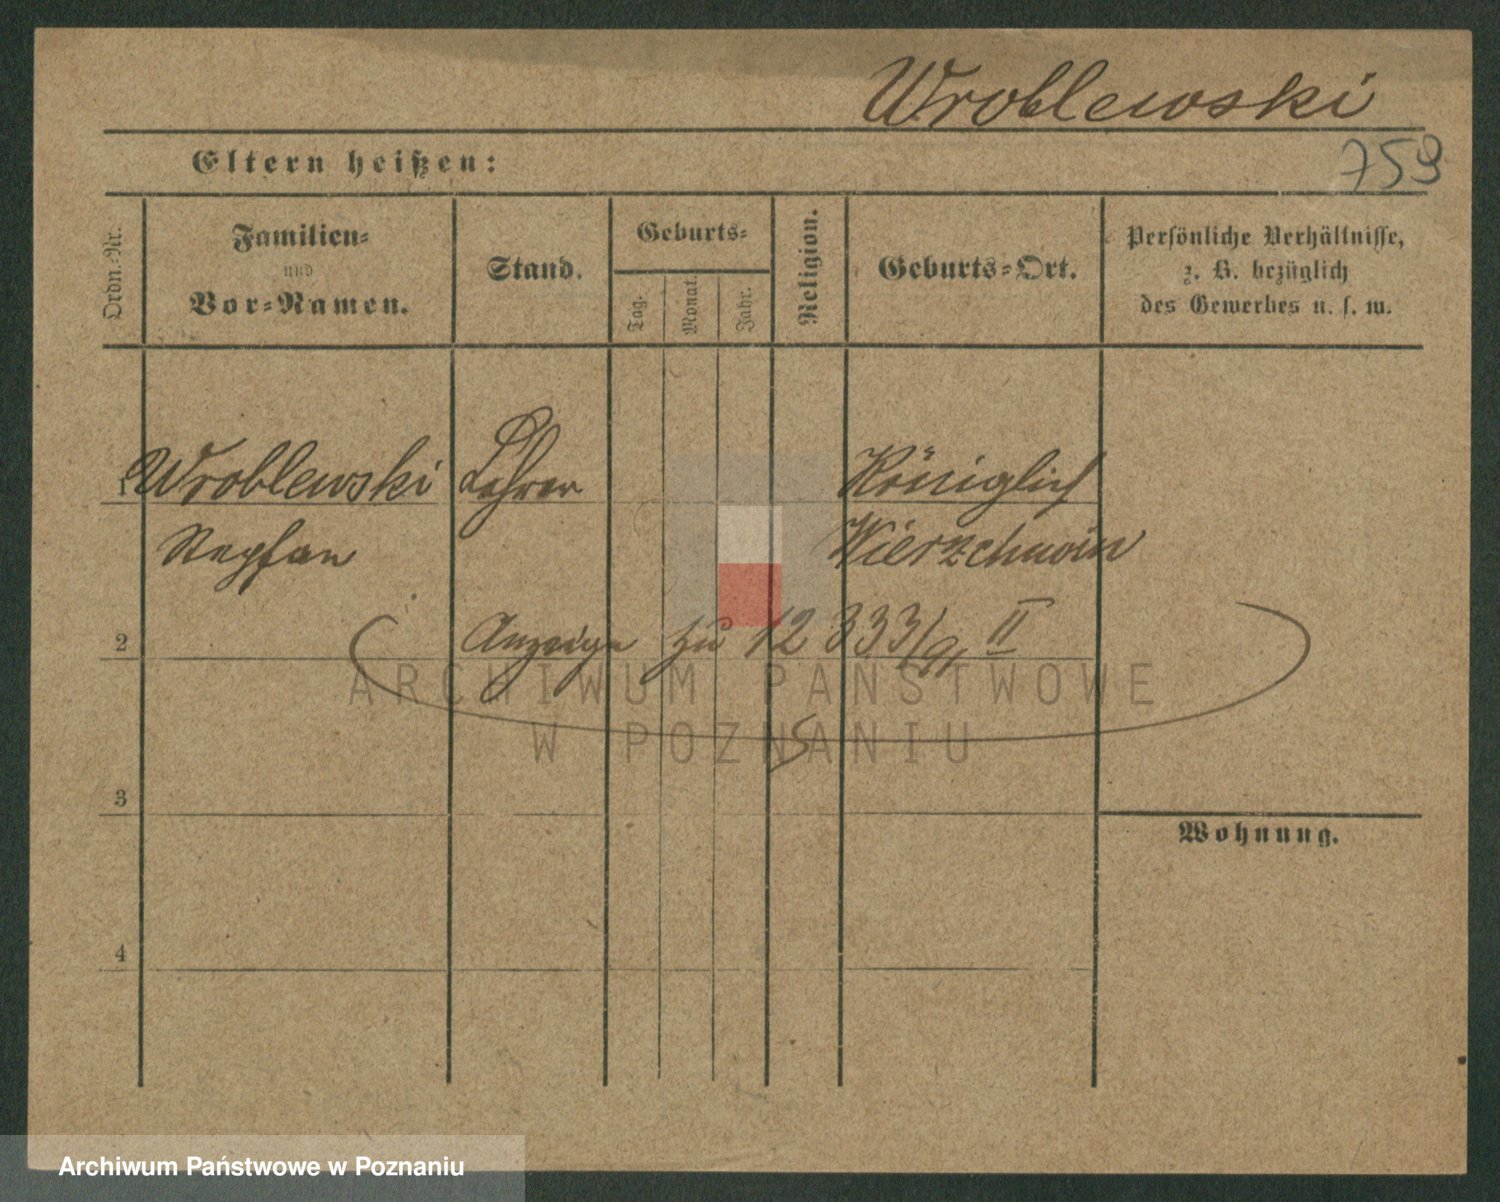 Wroblewski
759
Eltern heißen:
Ordn.-Nr.
Familien-
und
Vor-Namen.
Stand.
Geburts-
Tag.
Monat.
Jahr.
Religion.
Geburts-Ort.
Persönliche Verhältnisse,
z. B. bezüglich
des Gewerbes u. s. w.
1 Wroblewski Lehrer Königlich
Stephan Wierzchucin
2 Anzeige zu 12 333/91 II
ARCHIWUM PAŃSTWOWE
W POZNANIU
3
Wohnung.
4
Archiwum Państwowe w Poznaniu